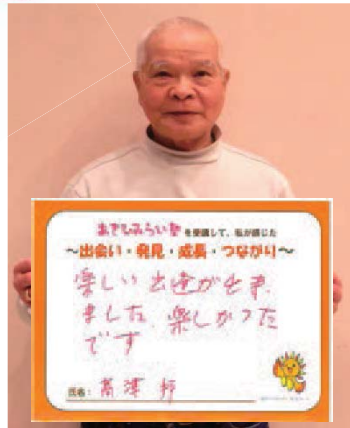 あさひみらい塾を受講して、私が感じた
～出会い・発見・成長・つながり～
楽しい出逢ができ
ました、楽しかった
です
氏名：髙澤